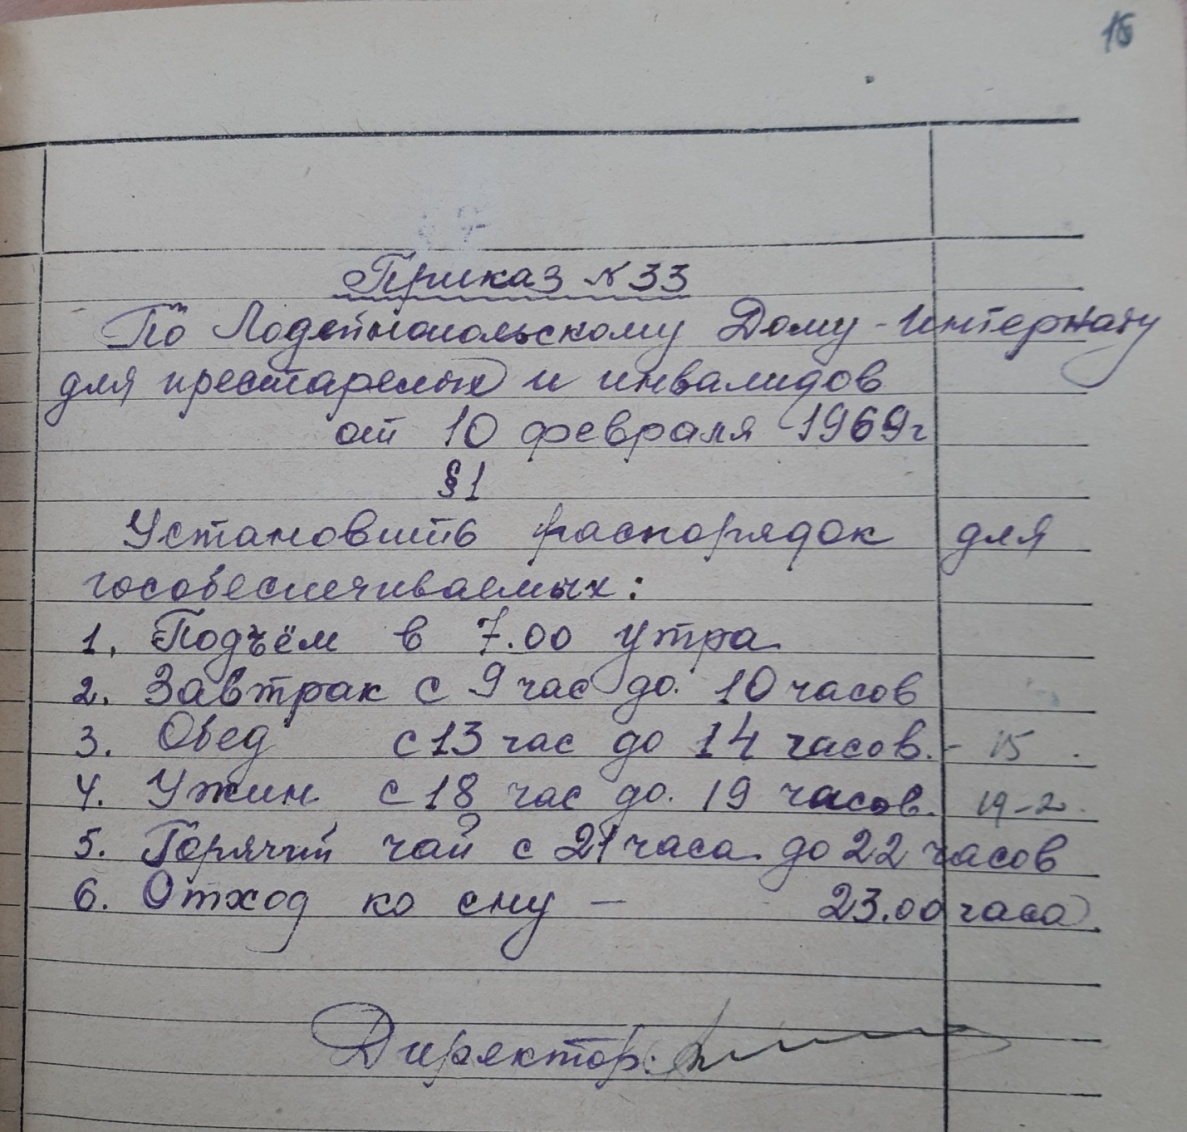 15
Приказ №33
По Лодейнопольскому Дому-Интернату
для престарелых и инвалидов
от 10 февраля 1969г
§1
Установить распорядок для
гособеспечиваемых:
1. Подъём в 7.00 утра
2. Завтрак с 9 час до 10 часов
3. Обед с 13 час до 14 часов. - 15
4. Ужин с 18 час до 19 часов. 19-2
5. Горячий чай с 21 часа до 22 часов
6. Отход ко сну — 23.00 часа.
Директор: